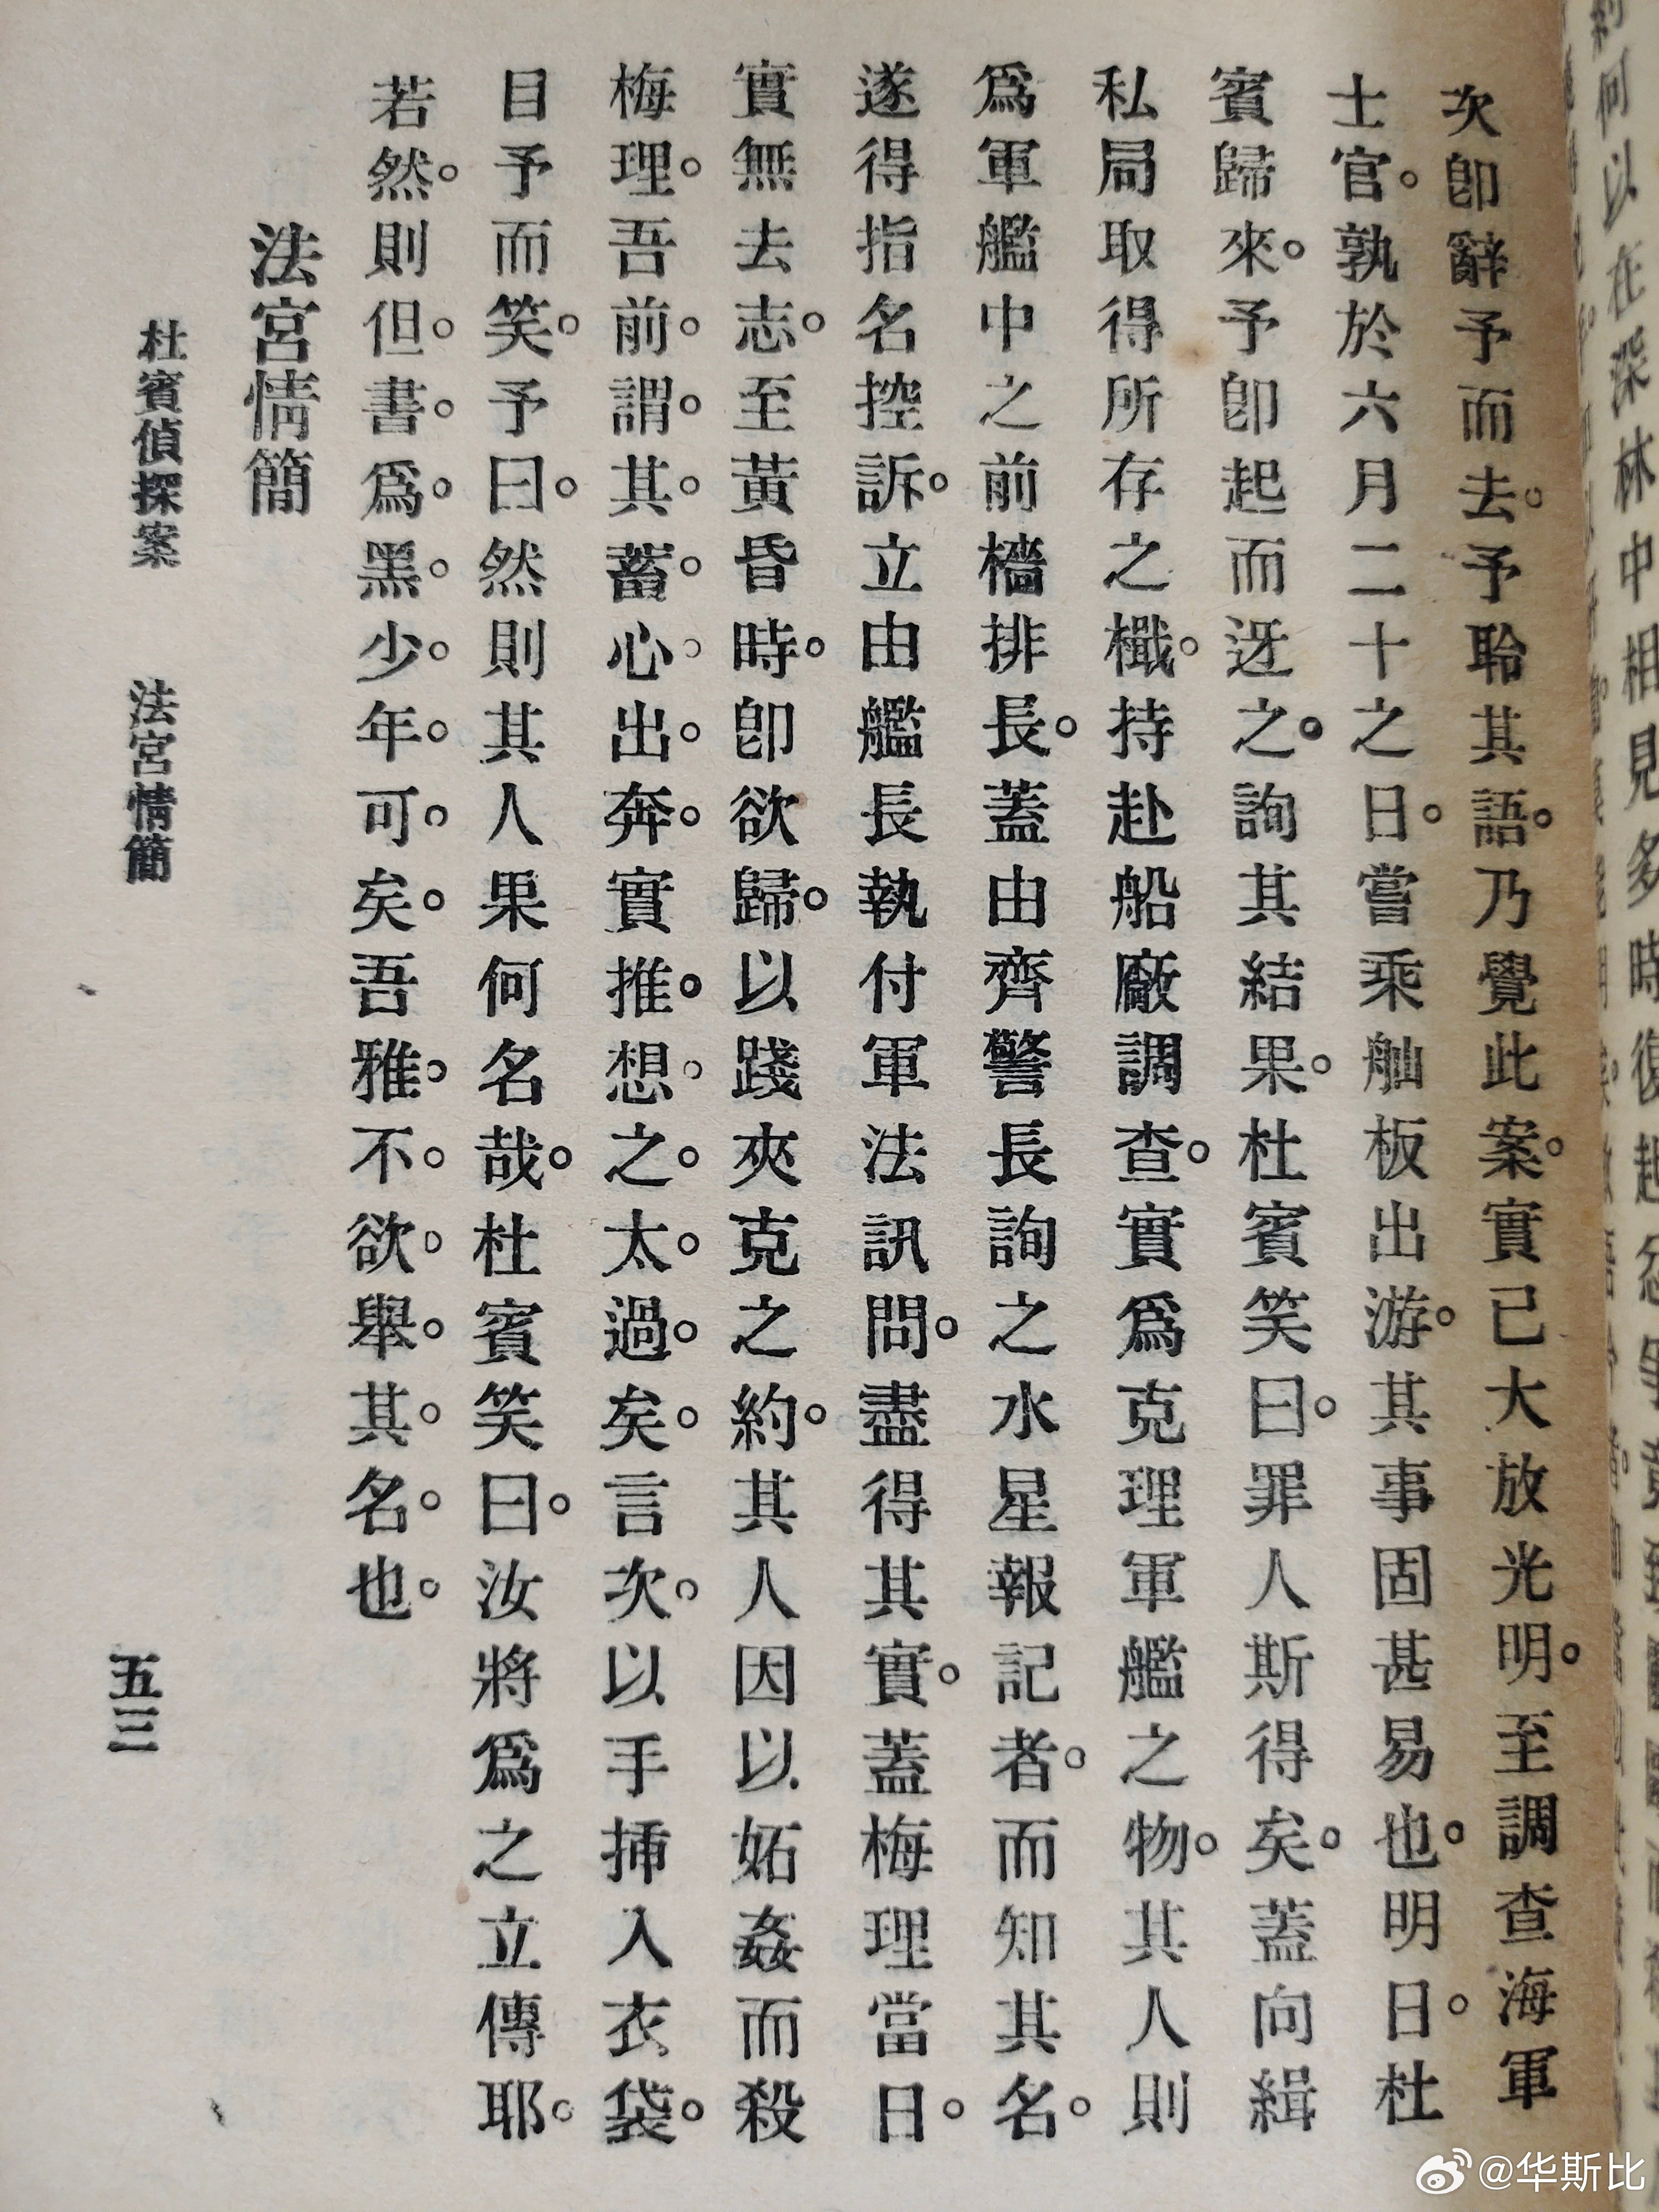 次卽辭予而去。予聆其語。乃覺此案。實已大放光明。至調查海軍
士官。孰於六月二十之日。嘗乘舢板出游。其事固甚易也。明日。杜
賓歸來。予卽起而迓之。詢其結果。杜賓笑曰。罪人斯得矣。蓋向緝
私局取得所存之檝。持赴船廠調查。實爲克理軍艦之物。其人則
爲軍艦中之前檣排長。蓋由齊警長詢之水星報記者。而知其名。
遂得指名控訴。立由艦長執付軍法訊問。盡得其實。蓋梅理當日。
實無去志。至黃昏時。卽欲歸。以踐夾克之約。其人因以妬姦而殺
梅理。吾前。謂。其。蓄。心。出。奔。實推。想。之。太。過。矣。言次。以手揷入衣袋。
目予而笑。予曰。然則其人果何名哉。杜賓笑曰。汝將爲之立傳耶。
若然。則但。書。爲。黑。少。年。可。矣。吾雅。不。欲。舉。其。名。也。
法宮情簡
杜賓偵探案 法宮情簡
五三
@华斯比